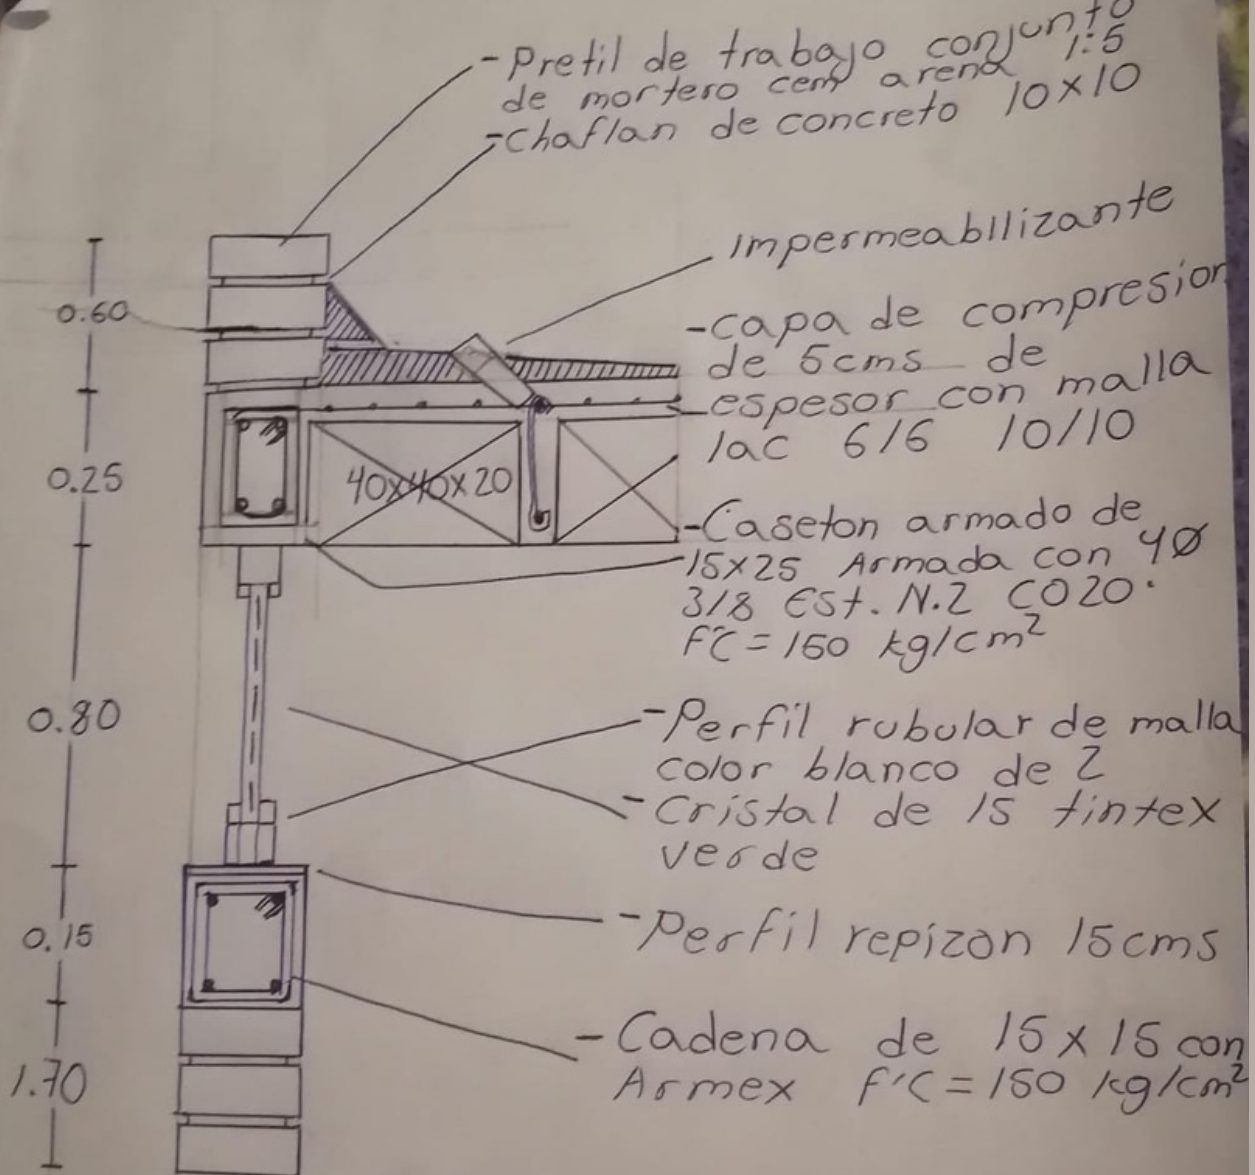 -Pretil de trabajo conjunto
de mortero cem arena 1:5
-chaflan de concreto 10x10
impermeabilizante
0.60
-capa de compresion
de 5cms de
espesor con malla
lac 6/6 10/10
0.25
40x40x20
-Caseton armado de
15x25 Armada con 4Ø
3/8 Est. N.2 CO20.
F'C=150 kg/cm²
0.80
-Perfil rubular de malla
color blanco de 2
-Cristal de 15 tintex
verde
0.15
-Perfil repizon 15cms
-Cadena de 15x15 con
Armex F'C=150 kg/cm²
1.70